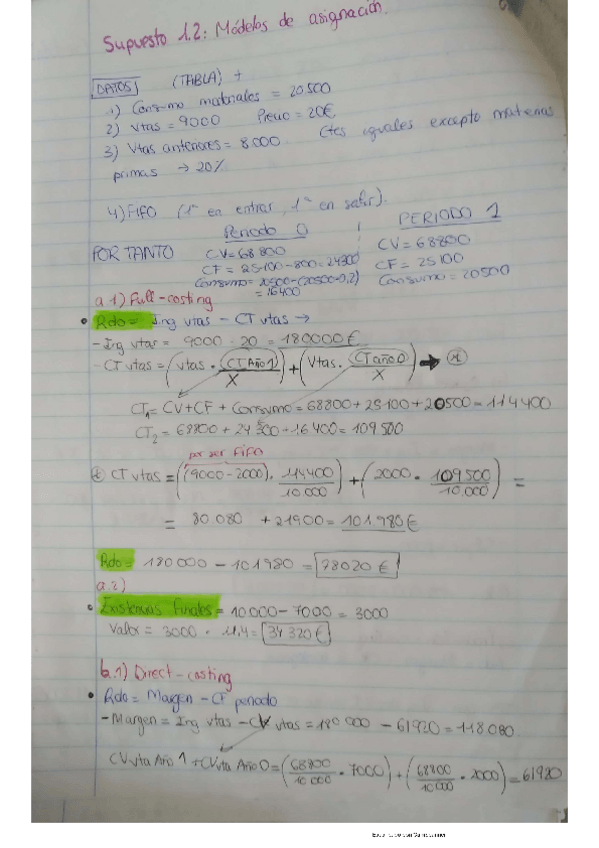 Supuesto 1.2: Módelos de asignación.
DATOS (TABLA) +
1) Consumo materiales = 20500
2) Vtas = 9000 Precio = 20€
3) Vtas anteriores = 8000 Ctes iguales excepto materias
primas → 20%
4) FIFO (1º en entrar, 1º en salir).
Periodo 0 PERIODO 1
POR TANTO CV = 68800 CV = 68800
CF = 25100 - 800 = 24300 CF = 25100
Consumo = 20500 - (20500·0,2) Consumo = 20500
= 16400
a.1) Full-costing
• Rdo = Ing vtas - CT vtas →
- Ing vtas = 9000 · 20 = 180000€
- CT vtas = (Vtas · CT Año 1 / X) + (Vtas · CT año 0 / X) → *
CT1 = CV + CF + Consumo = 68800 + 25100 + 20500 = 114400
CT2 = 68800 + 24300 + 16400 = 109500
por ser FIFO
* CT vtas = ((9000 - 2000) · 114400 / 10.000) + (2000 · 109500 / 10.000) =
= 80080 + 21900 = 101980€
Rdo = 180000 - 101980 = 78020 €
a.2)
• Existencias Finales = 10.000 - 7000 = 3000
Valor = 3000 · 11,4 = 34320€
b.1) Direct-costing
• Rdo = Margen - CF periodo
- Margen = Ing vtas - CV vtas = 180000 - 61920 = 118080.
CV vta Año 1 + CV vta Año 0 = (68800 / 10000 · 7000) + (68800 / 10000 · 2000) = 61920